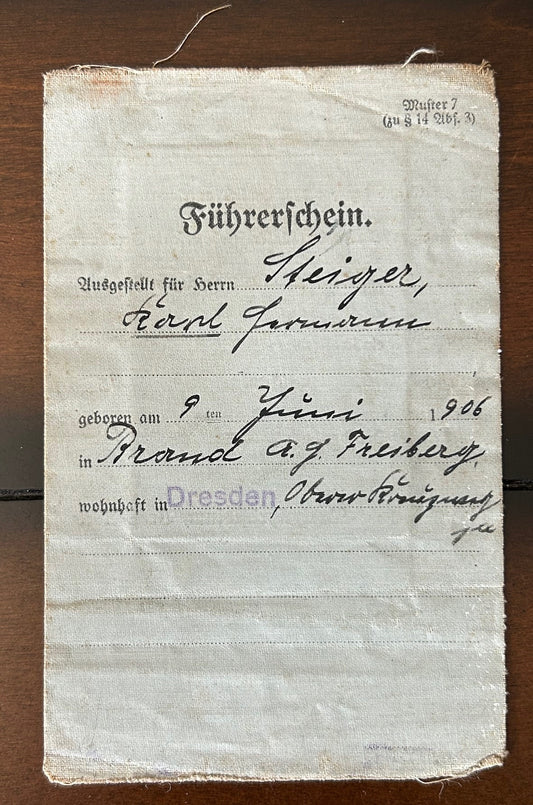 Muster 7
(zu § 14 Abs. 3)
Führerschein.
Ausgestellt für Herrn Steiger,
Karl Hermann
geboren am 9 ten Juni 1906
in Brand
wohnhaft in Dresden, Oberer